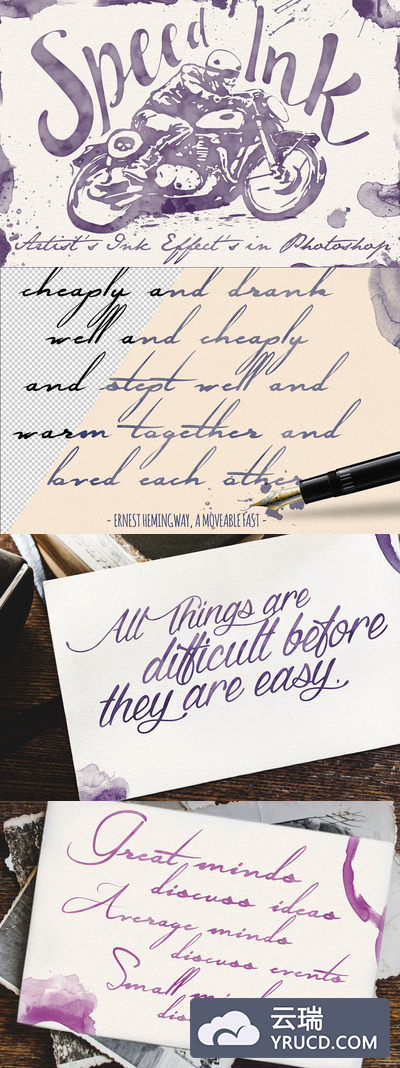 Speed Ink
Artist's Ink Effect's in Photoshop
cheaply and drank
well and cheaply
and slept well and
warm together and
loved each other
- ERNEST HEMINGWAY, A MOVEABLE FAST -
All Things are
difficult before
they are easy.
Great minds
discuss ideas
Average minds
discuss events
Small
云瑞
YRUCD.COM